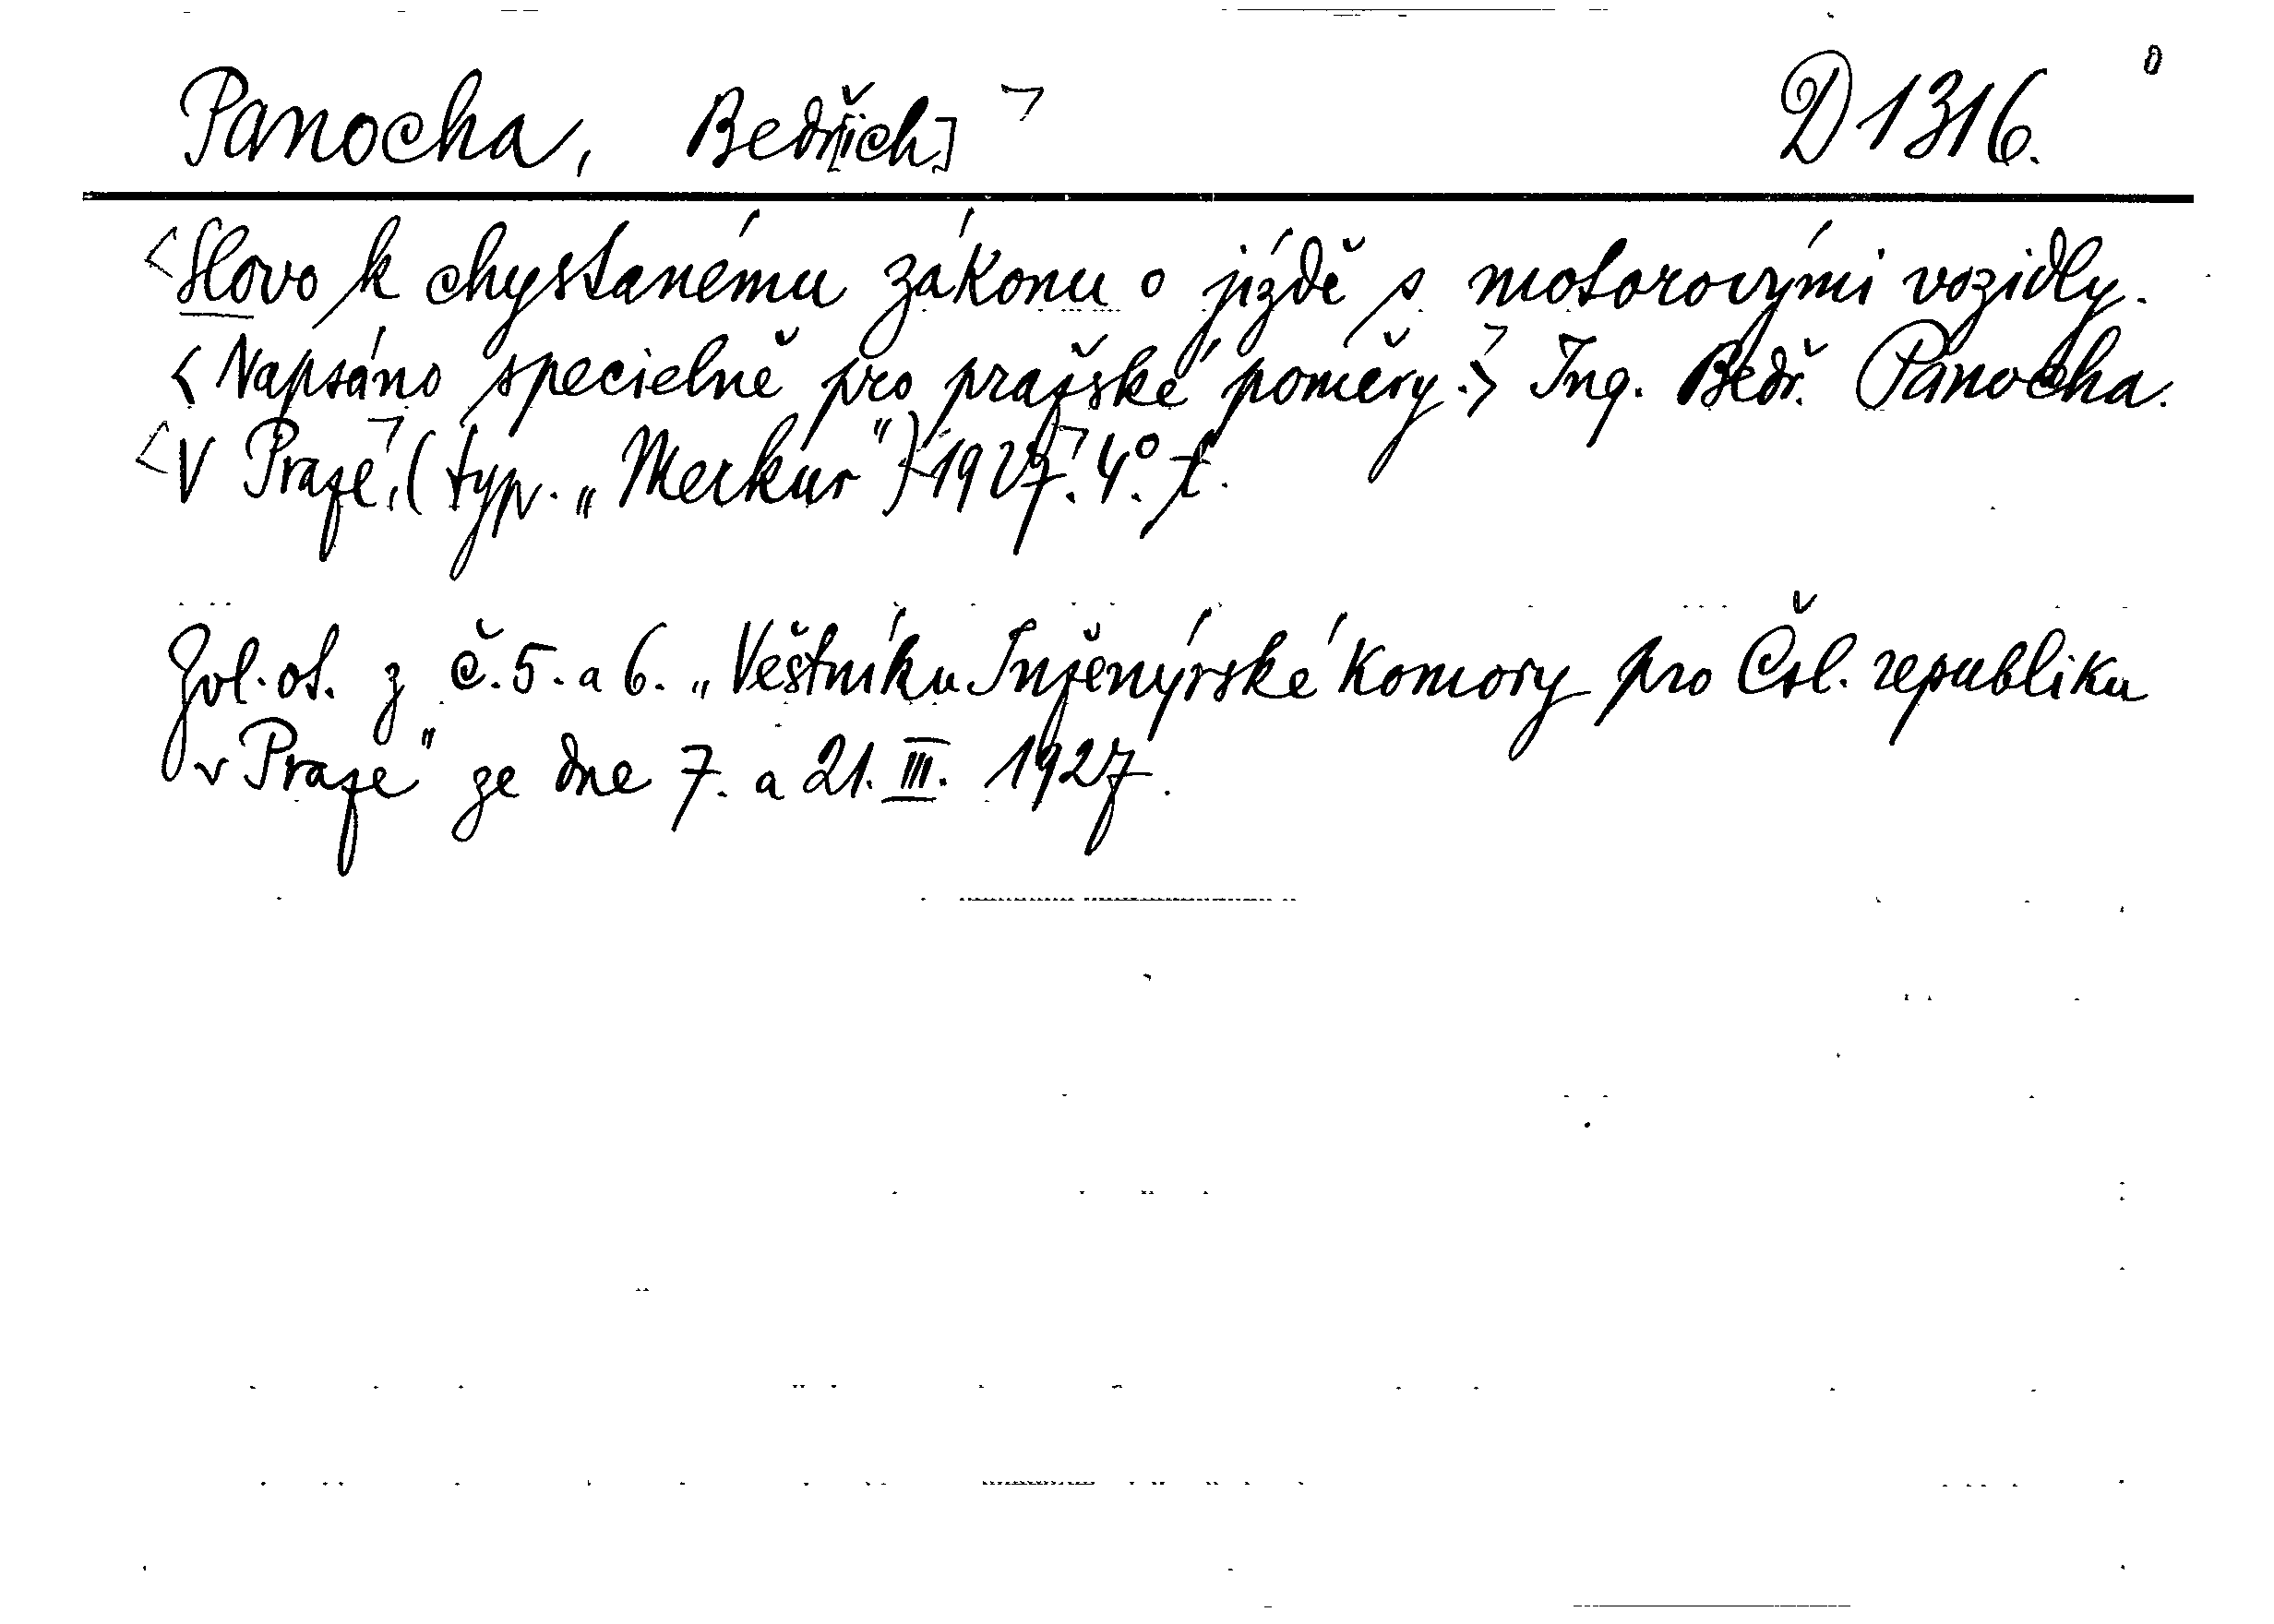 Panocha, Bedř[ich] D 1316.
Slovo k chystanému zákonu o jízdě s motorovými vozidly.
<Napsáno specielně pro pražské poměry.> Ing. Bedř. Panocha.
V Praze, (typ. „Merkur") 1927. 4°.
Zvl. ot. z č. 5. a 6. „Věstníku Inženýrské Komory pro Čsl. republiku
v Praze" ze dne 7. a 21. III. 1927.